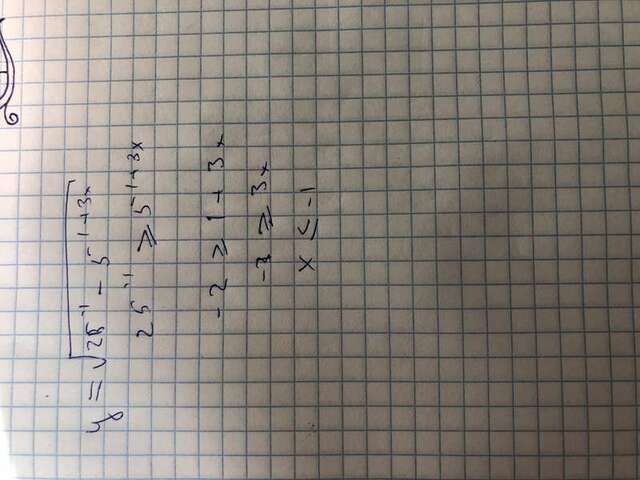 y = √(25⁻¹ - 5¹⁺³ˣ)
25⁻¹ ≥ 5¹⁺³ˣ
-2 ≥ 1 + 3x
-3 ≥ 3x
x ≤ -1